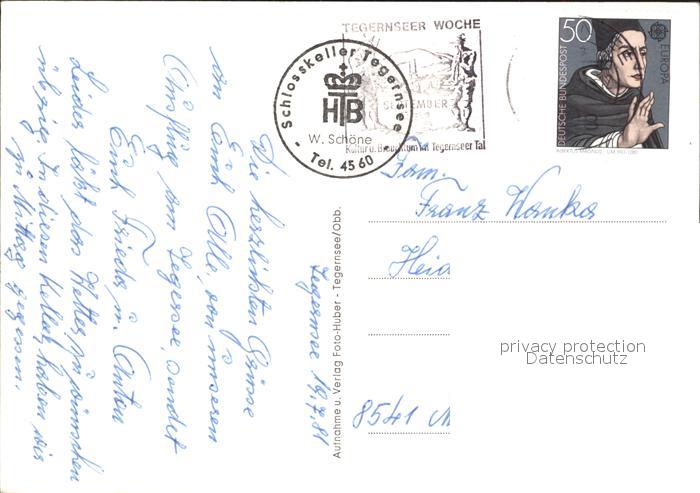 TEGERNSEER WOCHE
SEPTEMBER
Kultur u. Brauchtum im Tegernseer Tal
Schlosskeller Tegernsee
HTB
W. Schöne
Tel. 4560
50
DEUTSCHE BUNDESPOST
EUROPA
ALBERTUS MAGNUS
Fam.
Franz Wonka
Heid
8541 M
privacy protection
Datenschutz
Aufnahme u. Verlag Foto-Huber - Tegernsee/Obb.
Tegernsee 19.7.81
Die herzlichsten Grüsse
an Euch Alle, von unserem
Ausflug am Tegernsee, sendet
Euch Frieda u. Anton
Leider läßt das Wetter zu wünschen
übrig. In diesen Keller haben wir
zu Mittag gegessen.